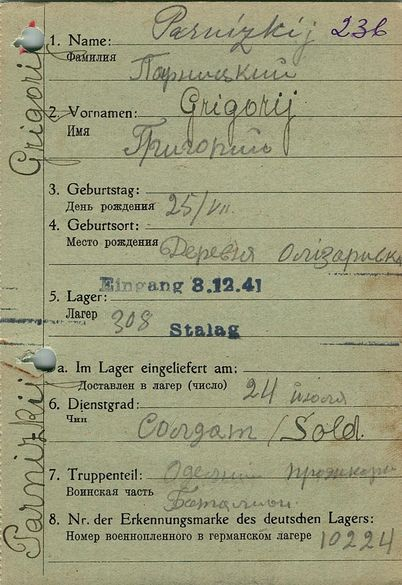 Parnizkij 236
1. Name:
Фамилия
Парницкий
2. Vornamen: Grigorij
Имя
Григорий
3. Geburtstag:
День рождения 25/VII.
4. Geburtsort:
Место рождения Деревня
Eingang 8.12.41
5. Lager:
Лагер 308
Stalag
a. Im Lager eingeliefert am:
Доставлен в лагер (число) 24 июля
6. Dienstgrad:
Чин Солдат / Sold.
7. Truppenteil:
Воинская часть
8. Nr. der Erkennungsmarke des deutschen Lagers:
Номер военнопленного в германском лагере 10224
Grigorij
Parnizkij